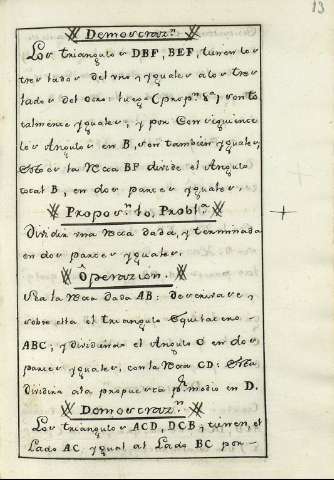 13
Demostraz.n
Los triangulos DBF, BEF, tienen los
tres lados del uno yguales alos tres
lados del otro: luego (prop.n 8.a) son to
talmente yguales, y por Consiguiente
los Angulos en B, son tambien yguales;
Esto es la Recta BF divide el Angulo
total B, en dos partes yguales.
Propos.n 10, Probl.a
Dividir una Recta dada, y terminada
en dos partes yguales.
Operazion.
Sea la Recta dada AB: descrivase,
sobre ella el triangulo Equilatero
ABC; y dividase el Angulo C en dos
partes yguales, con la Recta CD: Esta
dividira ala propuesta p.r medio en D.
Demostraz.n
Los triangulos ACD, DCB, tienen, el
Lado AC ygual al Lado BC por-